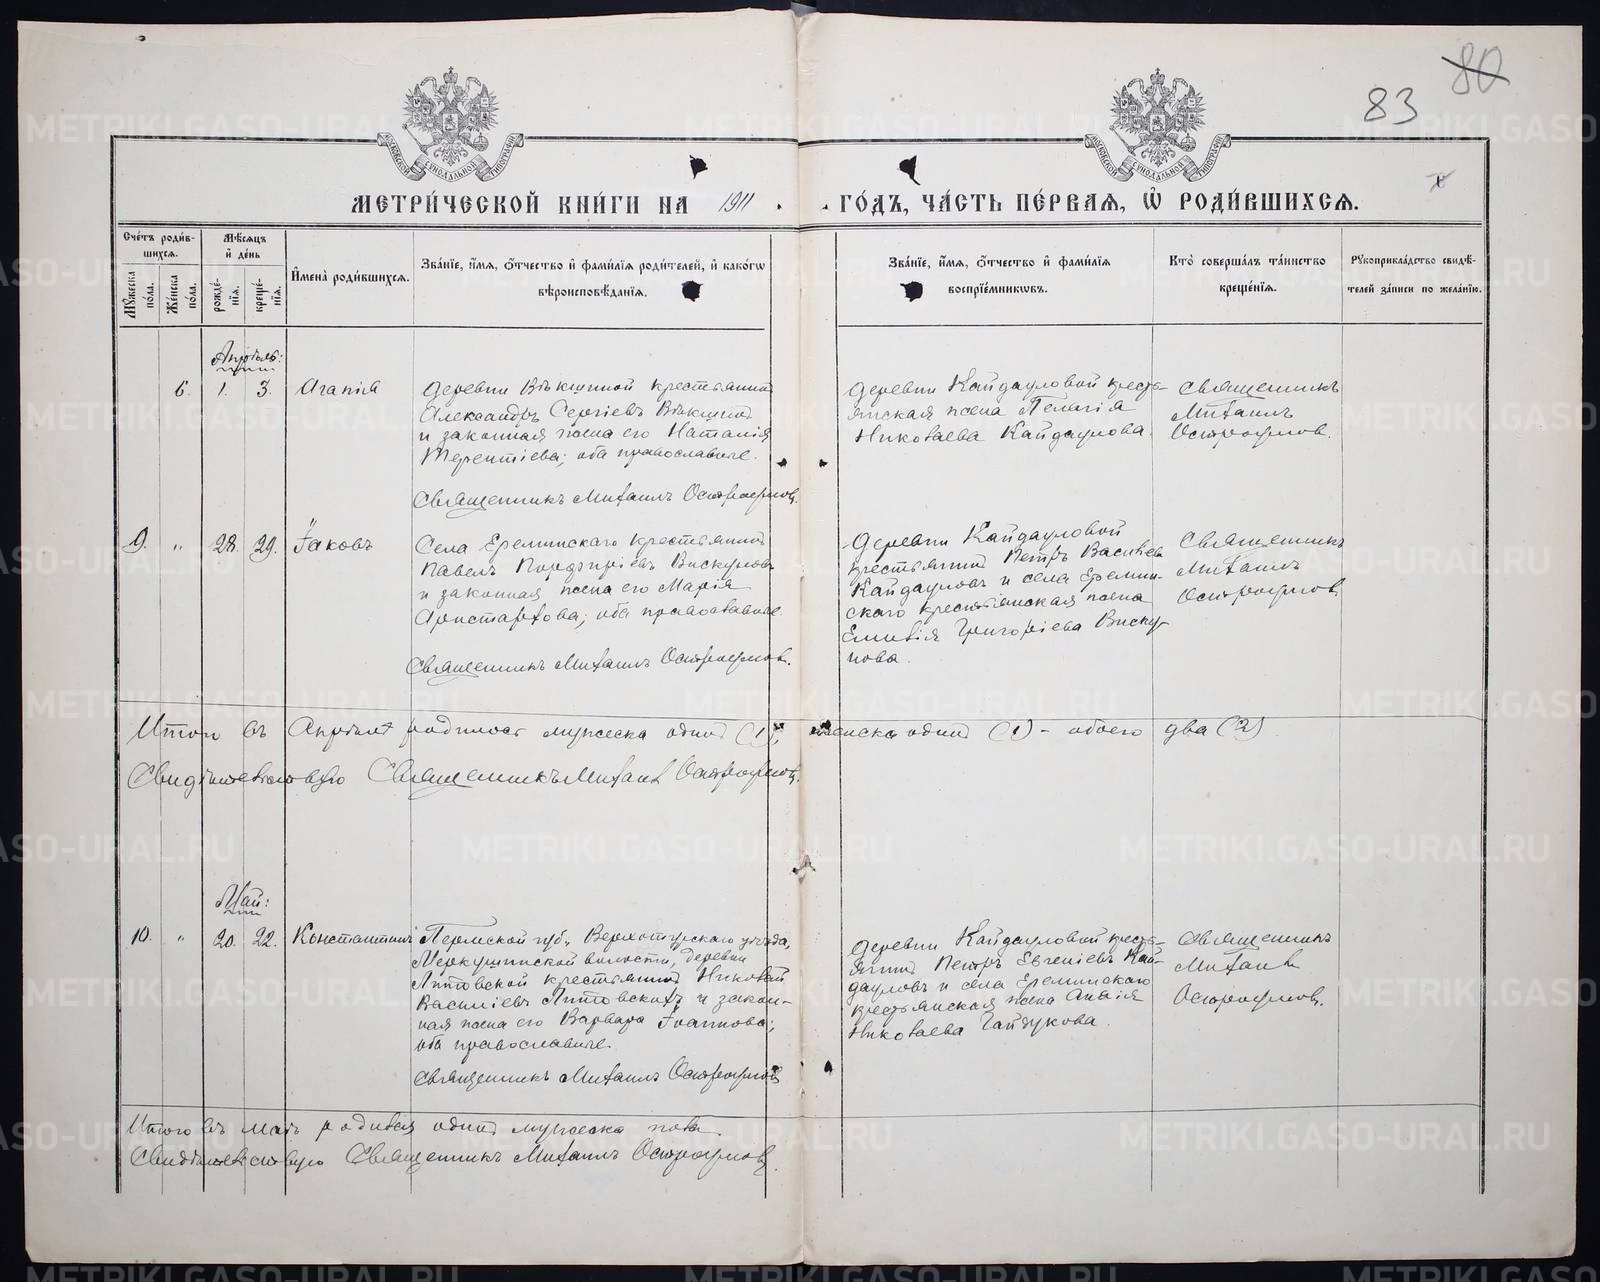 80
83
МЕТРИ́ЧЕСКОЙ КНИ́ГИ НА 1911 ГО́ДЪ, ЧА́СТЬ ПЕ́РВАЯ, Ѡ РОДИ́ВШИХСЯ.
Сче́тъ роди́в-
шихся.
Мѣ́сяцъ
и де́нь
Му́жеска по́ла.
Же́нска по́ла.
рожде́нїя.
креще́нїя.
Имена̀ роди́вшихся.
Зва́нїе, и́мя, о́тчество и фами́лїя роди́телей, и како́гѡ
вѣроисповѣ́данїя.
Зва́нїе, и́мя, о́тчество и фами́лїя
воспрїе́мникѡвъ.
Кто̀ соверша́лъ та́инство
креще́нїя.
Рукоприкла́дство свидѣ́-
телей за́писи по жела́нїю.
Апрѣль:
6. 1. 3. Агапія
деревни Вѣкшиной крестьянинъ
Александръ Сергіевъ Вѣкшинъ
и законная жена его Наталія
Терентіева; оба православные.
Священникъ Михаилъ Остроумовъ.
деревни Кайдауловой кресть-
янская жена Пелагія
Николаева Кайдаулова.
Священникъ
Михаилъ
Остроумов.
9. " 28. 29. Іаковъ
Села Ереминскаго крестьянинъ
Павелъ Порфиріевъ Вискуновъ
и законная жена его Марія
Аристархова; оба православные.
Священникъ Михаилъ Остроумовъ.
деревни Кайдауловой
крестьянинъ Петръ Васильев
Кайдауловъ и села Еремин-
скаго крестьянская жена
Григоріева Виску-
нова.
Священникъ
Михаилъ
Остроумов.
Итого въ Апрѣлѣ родилось мужеска одинъ (1), женска один (1) - обоего два (2)
Свидѣтельствую Священникъ Михаилъ Остроумовъ.
Май:
10. " 20. 22. Константинъ
Пермской губ., Верхотурскаго уѣзда,
Меркушинской волости, деревни
Литовской крестьянинъ Николай
Василіевъ Литовскихъ и закон-
ная жена его Варвара Іоаннова;
оба православные.
Священникъ Михаилъ Остроумовъ
деревни Кайдауловой кресть-
янинъ Петръ Евгеніевъ Кай-
дауловъ и села Ереминскаго
крестьянская жена
Николаева Гайдукова.
Священникъ
Михаилъ
Остроумов.
Итого въ маѣ родился одинъ мужеска пола.
Свидѣтельствую Священникъ Михаилъ Остроумовъ.
METRIKI.GASO-URAL.RU